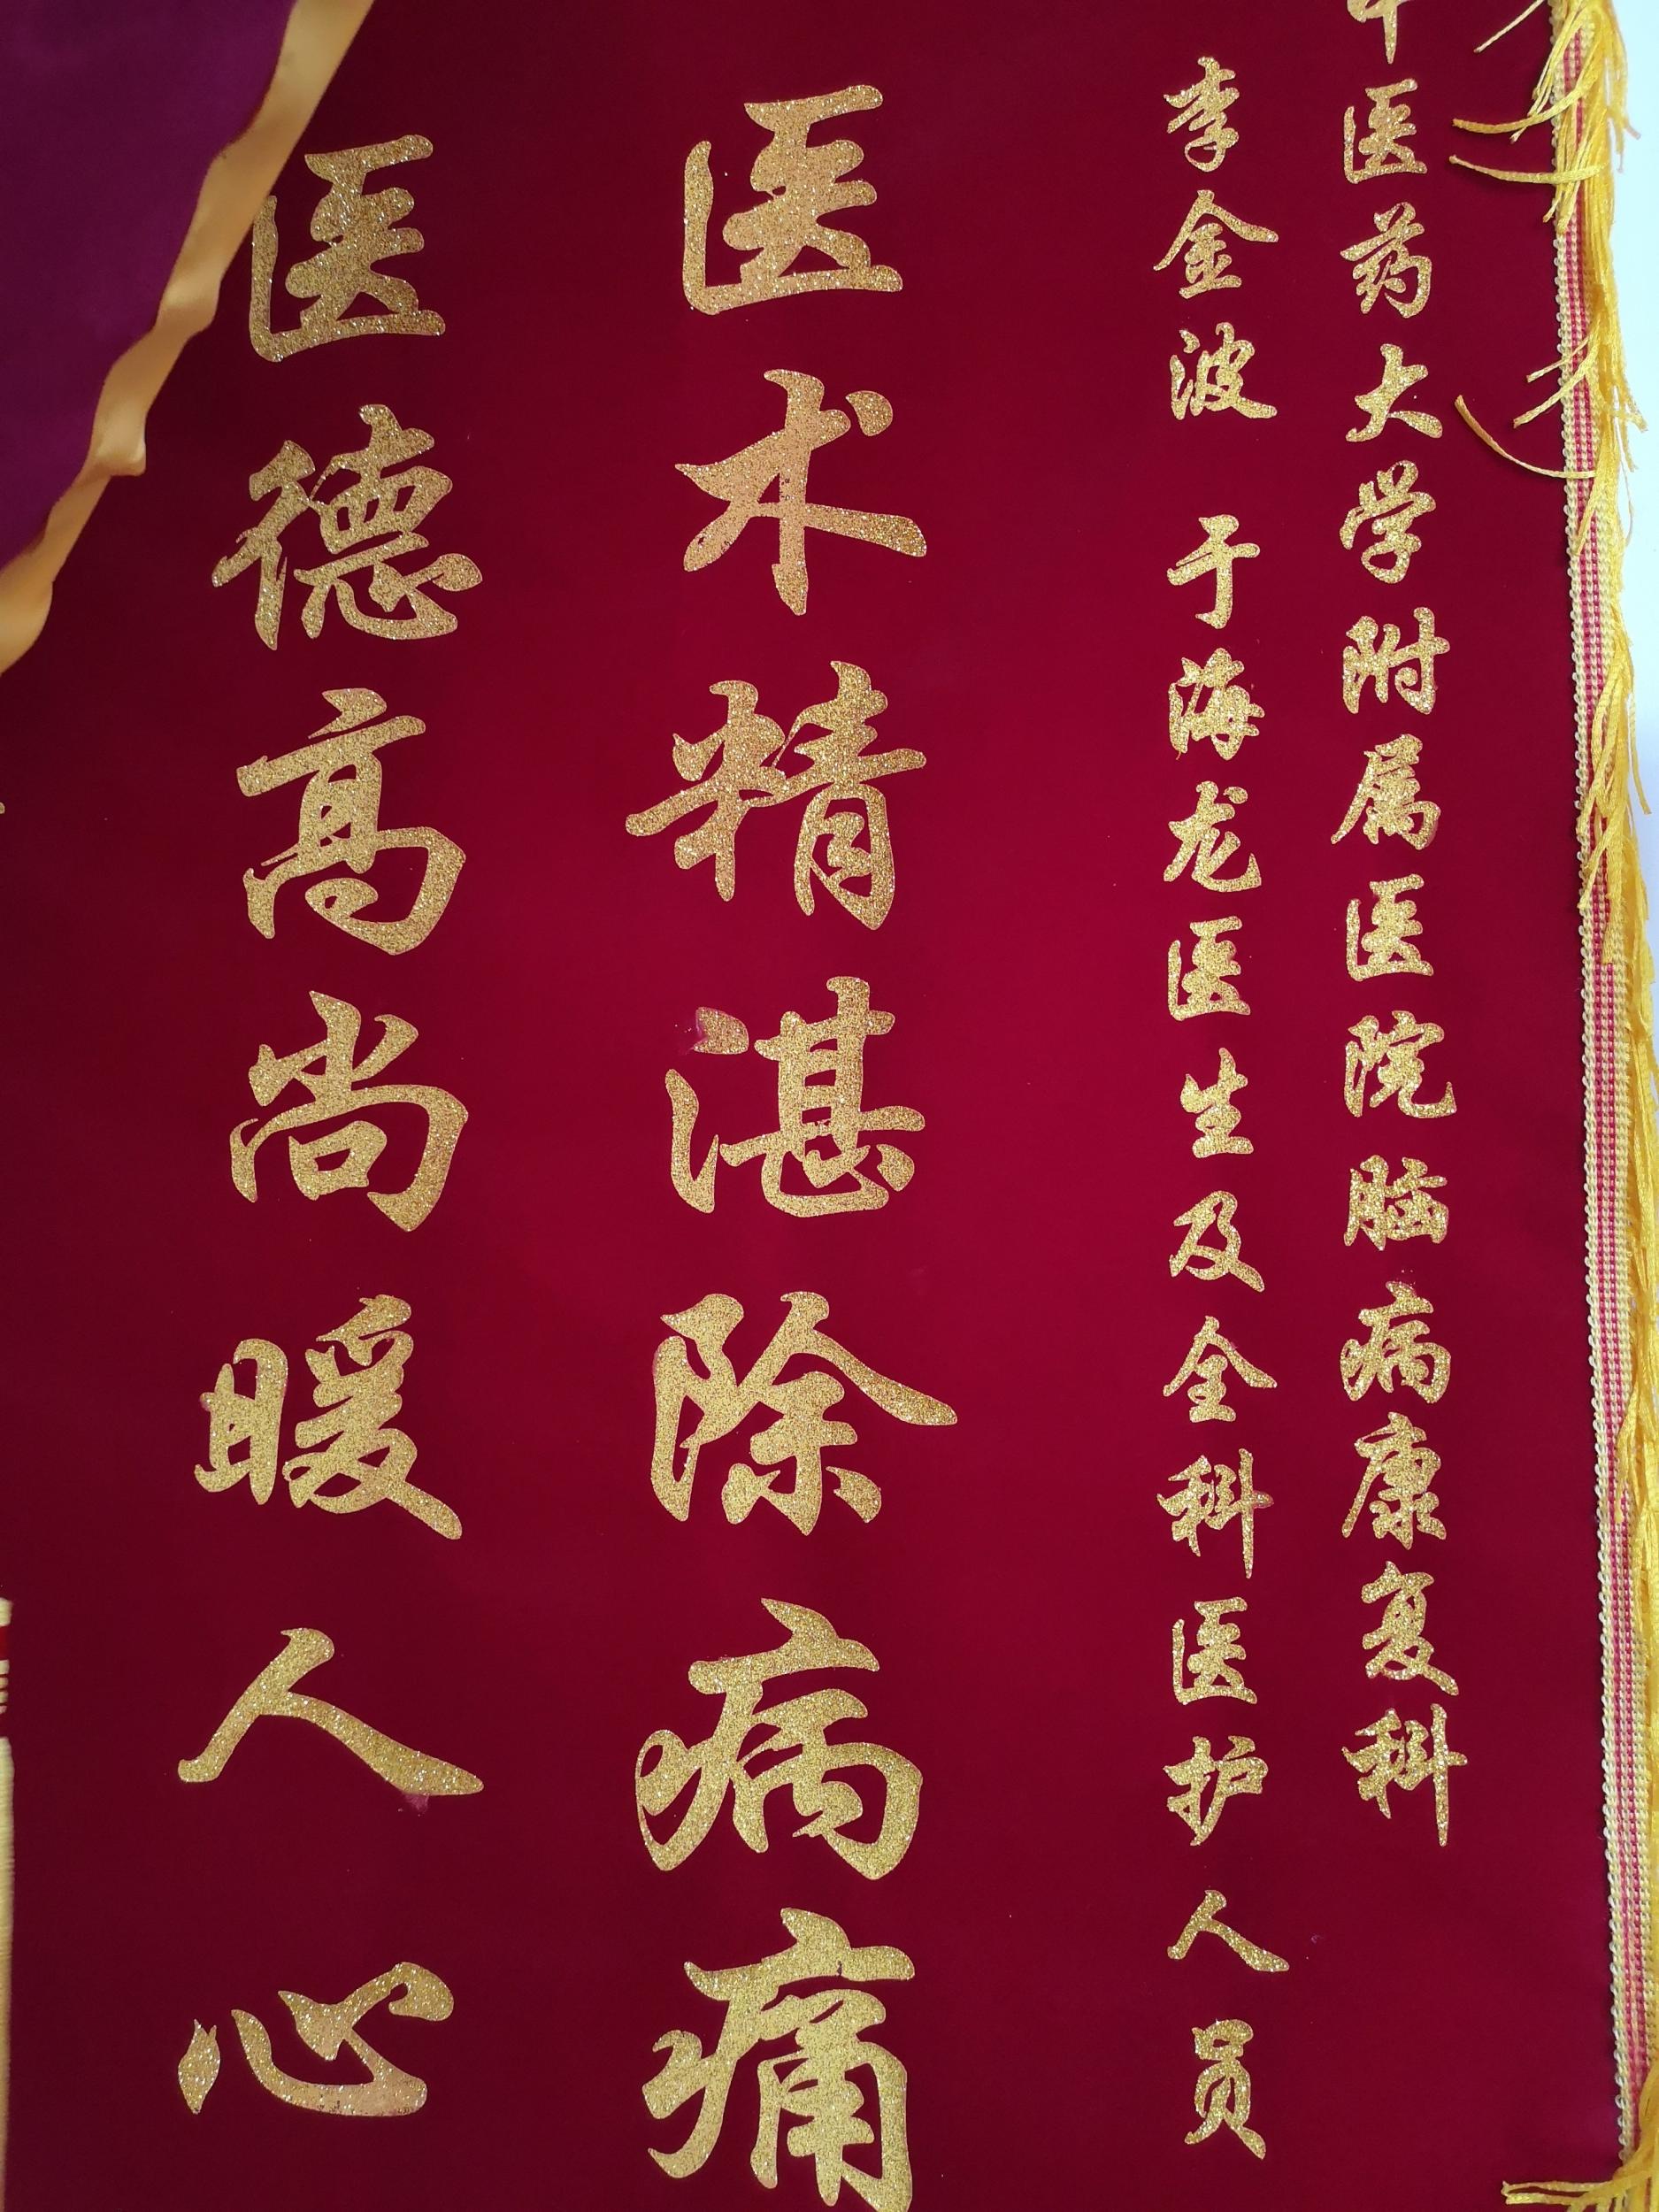 中医药大学附属医院脑病康复科
李金波 于海龙医生及全科医护人员
医术精湛除病痛
医德高尚暖人心